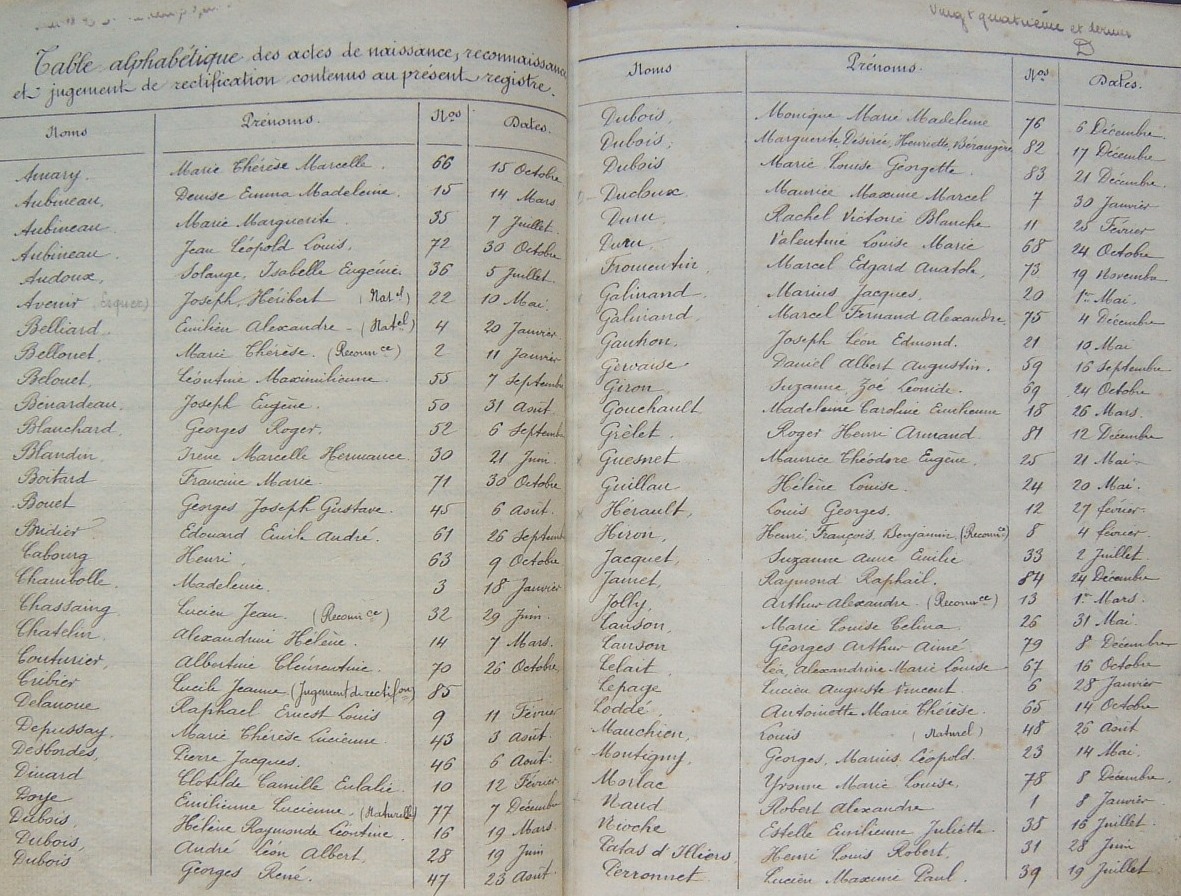 Table alphabétique des actes de naissance, reconnaissance
et jugement de rectification contenus au présent registre.
Noms Prénoms. Nos Dates.
Amary. Marie Thérèse Marcelle. 66 15 Octobre
Aubineau, Denise Emma Madeleine. 15 14 Mars
Aubineau. Marie Marguerite. 35 7 Juillet.
Aubineau. Jean Léopold Louis, 72 30 Octobre
Audoux, Solange, Isabelle Eugénie. 36 5 Juillet.
Avenir Joseph, Héribert (Natel) 22 10 Mai
Belliard. Emilien Alexandre - (Natel) 4 20 Janvier
Bellouet. Marie Thérèse. (Reconnce) 2 11 Janvier
Belouet, Léontine Maximilienne 55 7 Septembre
Bénardeau. Joseph Eugène. 50 31 Août
Blanchard. Georges Roger. 52 6 Septembre
Blandin. Irène Marcelle Hermance. 30 21 Juin.
Boitard Francine Marie. 71 30 Octobre
Bouet Georges Joseph Gustave. 45 6 Août.
Budier Edouard Emile André. 61 26 Septemb
Cabourg Henri, 63 9 Octobre
Chambolle. Madeleine. 3 18 Janvier
Chassaing Lucien Jean. (Reconnce) 32 29 Juin.
Chatelin. Alexandrine Hélène. 14 7 Mars.
Couturier, Albertine Clémentine. 70 26 Octobre
Cribier Lucile Jeanne (Jugement de rectifion) 85
Delanoue Raphael Ernest Louis 9 11 Février
Depussay. Marie Thérèse Lucienne. 43 3 Août.
Desbordes, Pierre Jacques. 46 6 Août.
Dinard Clotilde Camille Eulalie. 10 12 Février
Doye Emilienne Lucienne, (Naturelle) 77 7 Décembre
Dubois, Hélène Raymonde Léontine. 16 19 Mars
Dubois, André Léon Albert, 28 19 Juin
Dubois Georges René. 47 23 Août.
Vingt quatrième et dernier
D
Noms Prénoms. Nos Dates.
Dubois, Monique Marie Madeleine 76 6 Décembre
Dubois, Marguerite, Désirée, Henriette, Bérangère 82 17 Décembre
Dubois Marie Louise Georgette 83 21 Décembre.
Ducloux Maurice Maxime Marcel 7 30 Janvier
Duru, Rachel Victoire Blanche 11 25 Février
Duru Valentine Louise Marie 68 24 Octobre
Fromentin, Marcel Edgard Anatole, 73 19 Novembre
Galinand. Marius Jacques, 20 1er Mai.
Galinand. Marcel Fernand Alexandre. 75 4 Décembre
Gauthon, Joseph Léon Edmond. 21 10 Mai
Gervaise Daniel Albert Augustin. 59 16 Septembre
Giron. Suzanne Zoé Léonide. 69 24 Octobre
Gouchault Madeleine Caroline Emilienne 18 26 Mars.
Grêlet, Roger Henri Armand. 81 12 Décembre
Guesnet Maurice Théodore Eugène. 25 21 Mai
Guillau Hélène Louise. 24 20 Mai.
Hérault, Louis Georges. 12 27 février.
Hiron, Henri, François, Benjamin. (Reconnce) 8 4 février.
Jacquet, Suzanne Anne Emilie 33 2 Juillet
Jamet, Raymond Raphaël. 84 24 Décembre
Jolly, Arthur Alexandre. (Reconnce) 13 1er Mars.
Lanson, Marie Louise Celina. 26 31 Mai.
Lanson Georges Arthur Aimé 79 8 Décembre
Lelait Léa, Alexandrine Marie Louise 67 16 Octobre
Lepage Lucien Auguste Vincent. 6 28 Janvier
Loddé. Antoinette Marie Thérèse. 65 14 Octobre
Mauchien, Louis (Naturel) 48 26 Août
Montigny, Georges, Marius Léopold. 23 14 Mai.
Morlac Yvonne Marie Louise, 78 8 Décembre.
Naud Robert Alexandre 1 8 Janvier.
Nioche Estelle Emilienne Juliette. 35 16 Juillet.
Patas d'Illiers, Henri Louis Robert, 31 28 Juin
Perronnet, Lucien Maxime Paul. 39 19 Juillet